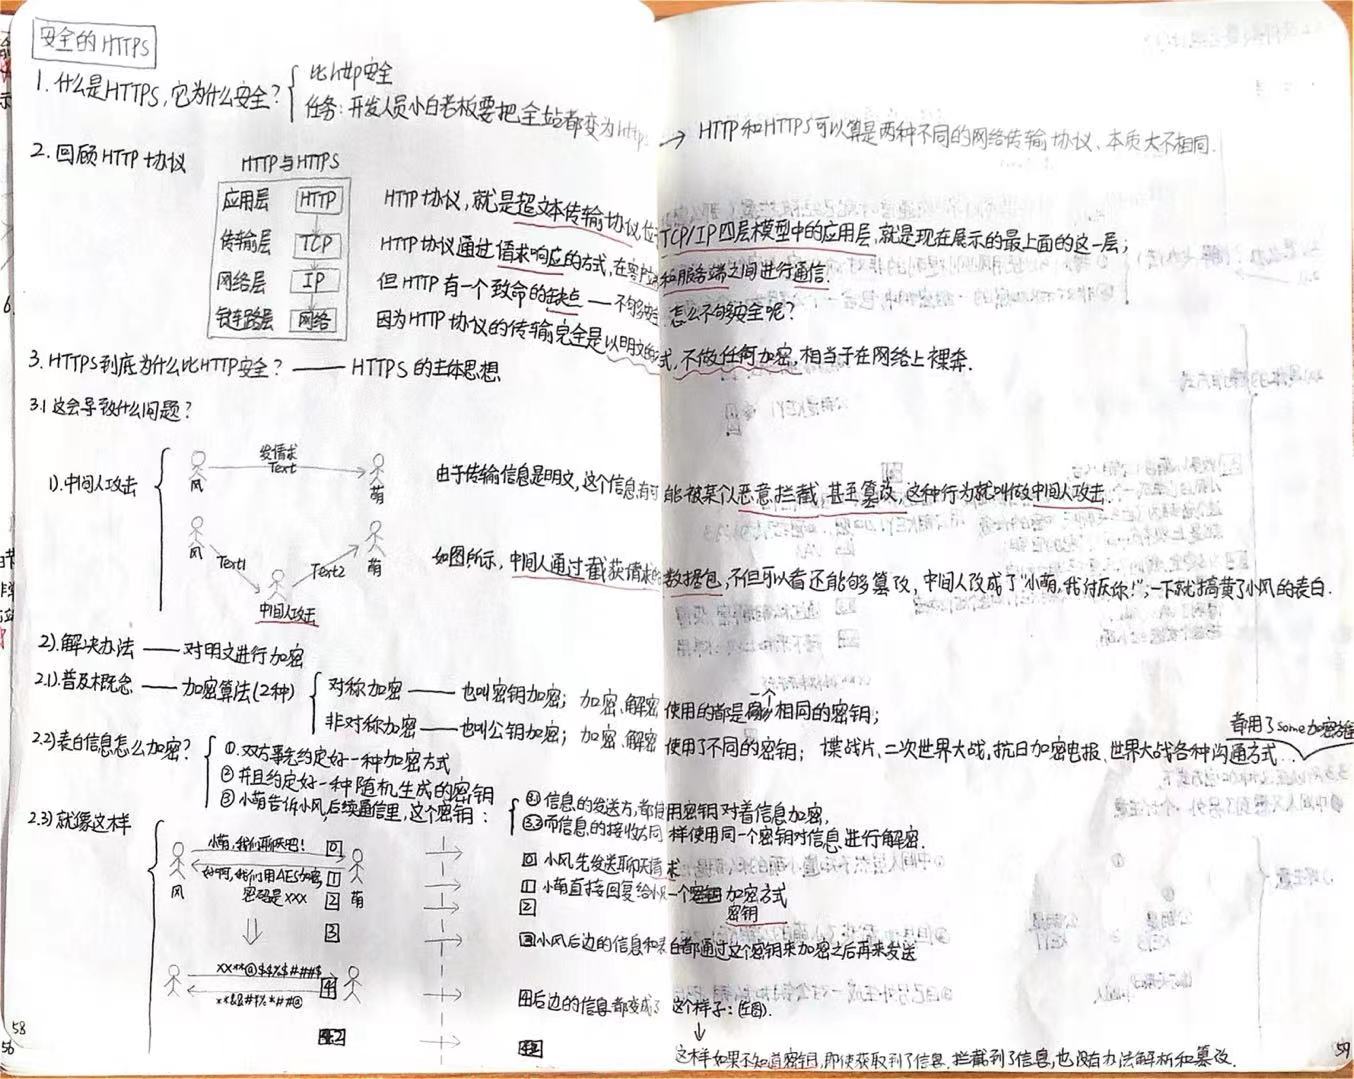 安全的HTTPS
1. 什么是HTTPS,它为什么安全?
比http安全
任务:开发人员小白老板要把全站都变为https → HTTP和HTTPS可以算是两种不同的网络传输协议、本质大不相同.
2. 回顾HTTP协议
HTTP与HTTPS
应用层 HTTP
传输层 TCP
网络层 IP
链路层 网络
HTTP协议,就是超文本传输协议位 TCP/IP四层模型中的应用层,就是现在展示的最上面的这一层;
HTTP协议通过请求响应的方式,在客户 和服务端之间进行通信.
但HTTP有一个致命的缺点——不够安全 怎么不够安全呢?
因为HTTP协议的传输完全是以明文的 式,不做任何加密,相当于在网络上裸奔.
3. HTTPS到底为什么比HTTP安全?——HTTPS的主体思想
3.1 这会导致什么问题?
1).中间人攻击
发请求
Text
风 萌
由于传输信息是明文,这个信息有可能被某个人恶意拦截、甚至篡改,这种行为就叫做中间人攻击.
风 Text1 Text2 萌
中间人攻击
如图所示,中间人通过截获请求的数据包,不但可以看还能够篡改,中间人改成了"小萌,我讨厌你!";一下就搞黄了小风的表白.
2).解决办法——对明文进行加密
2.1).普及概念——加密算法(2种)
对称加密——也叫密钥加密;加密、解密使用的都是一个相同的密钥;
非对称加密——也叫公钥加密;加密、解密使用了不同的密钥;谍战片、二次世界大战,抗日加密电报、世界大战各种沟通方式...
都用了some加密
2.2)表白信息怎么加密?
①.双方事先约定好一种加密方式
②并且约定好一种随机生成的密钥
③小萌告诉小风,后续通信里,这个密钥:
3.1信息的发送方,都使用密钥对着信息加密,
3.2而信息的接收方同样使用同一个密钥对信息进行解密.
2.3)就像这样
小萌,我们聊天吧! 0
好啊,我们用AES加密, 1
密码是XXX 2
风 萌
3
XX**@$$%$###$
**&&#$%*##@ 4
4.2
0 小风先发送聊天请求
1 小萌直接回复给小风一个加密方式
2 密钥
3 小风后边的信息和表白都通过这个密钥来加密之后再来发送
4 后边的信息都变成了这个样子:(左图).
这样如果不知道密钥,即使获取到了信息、拦截到了信息,也没有办法解析和篡改.
58
59